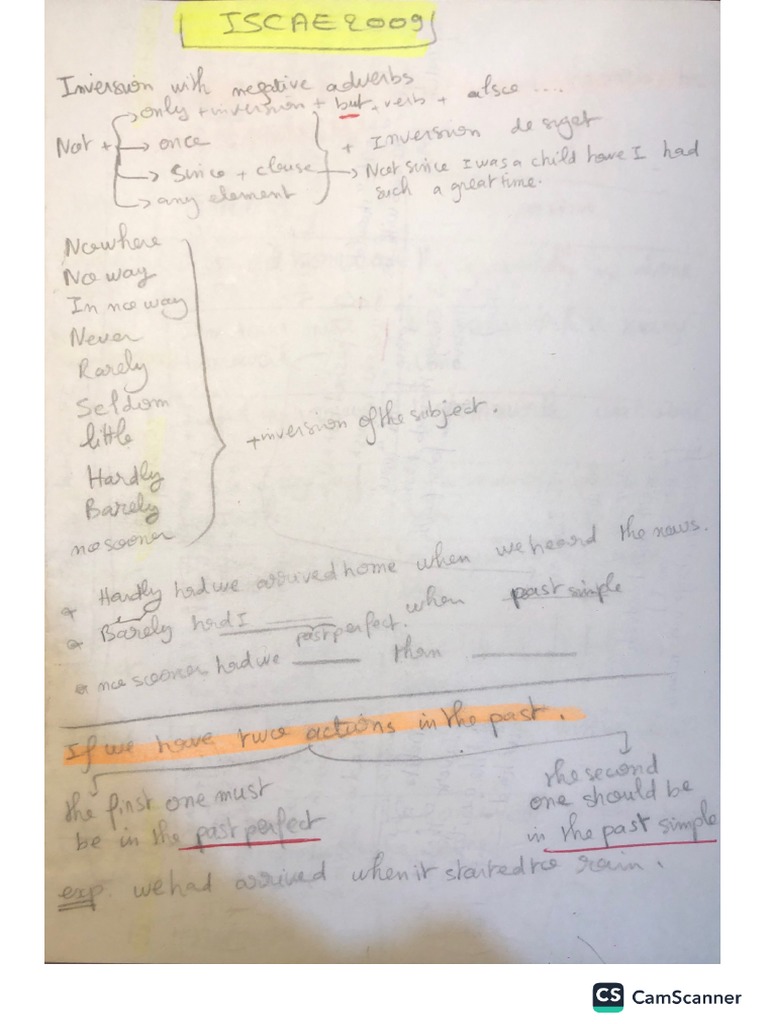 ISCAE 2009
Inversion with negative adverbs
only + inversion + but + verb + also ....
Not +
once
+ Inversion de sujet
Since + clause
Not since I was a child have I had
such a great time.
any element
Nowhere
No way
In no way
Never
Rarely
Seldom
little
Hardly
Barely
no sooner
+ inversion of the subject.
* Hardly had we arrived home when we heard the news.
* Barely had I ____ when past simple
past perfect.
* no sooner had we ____ than ____
If we have two actions in the past.
the first one must
be in the past perfect
the second
one should be
in the past simple
exp we had arrived when it started to rain.
CS CamScanner